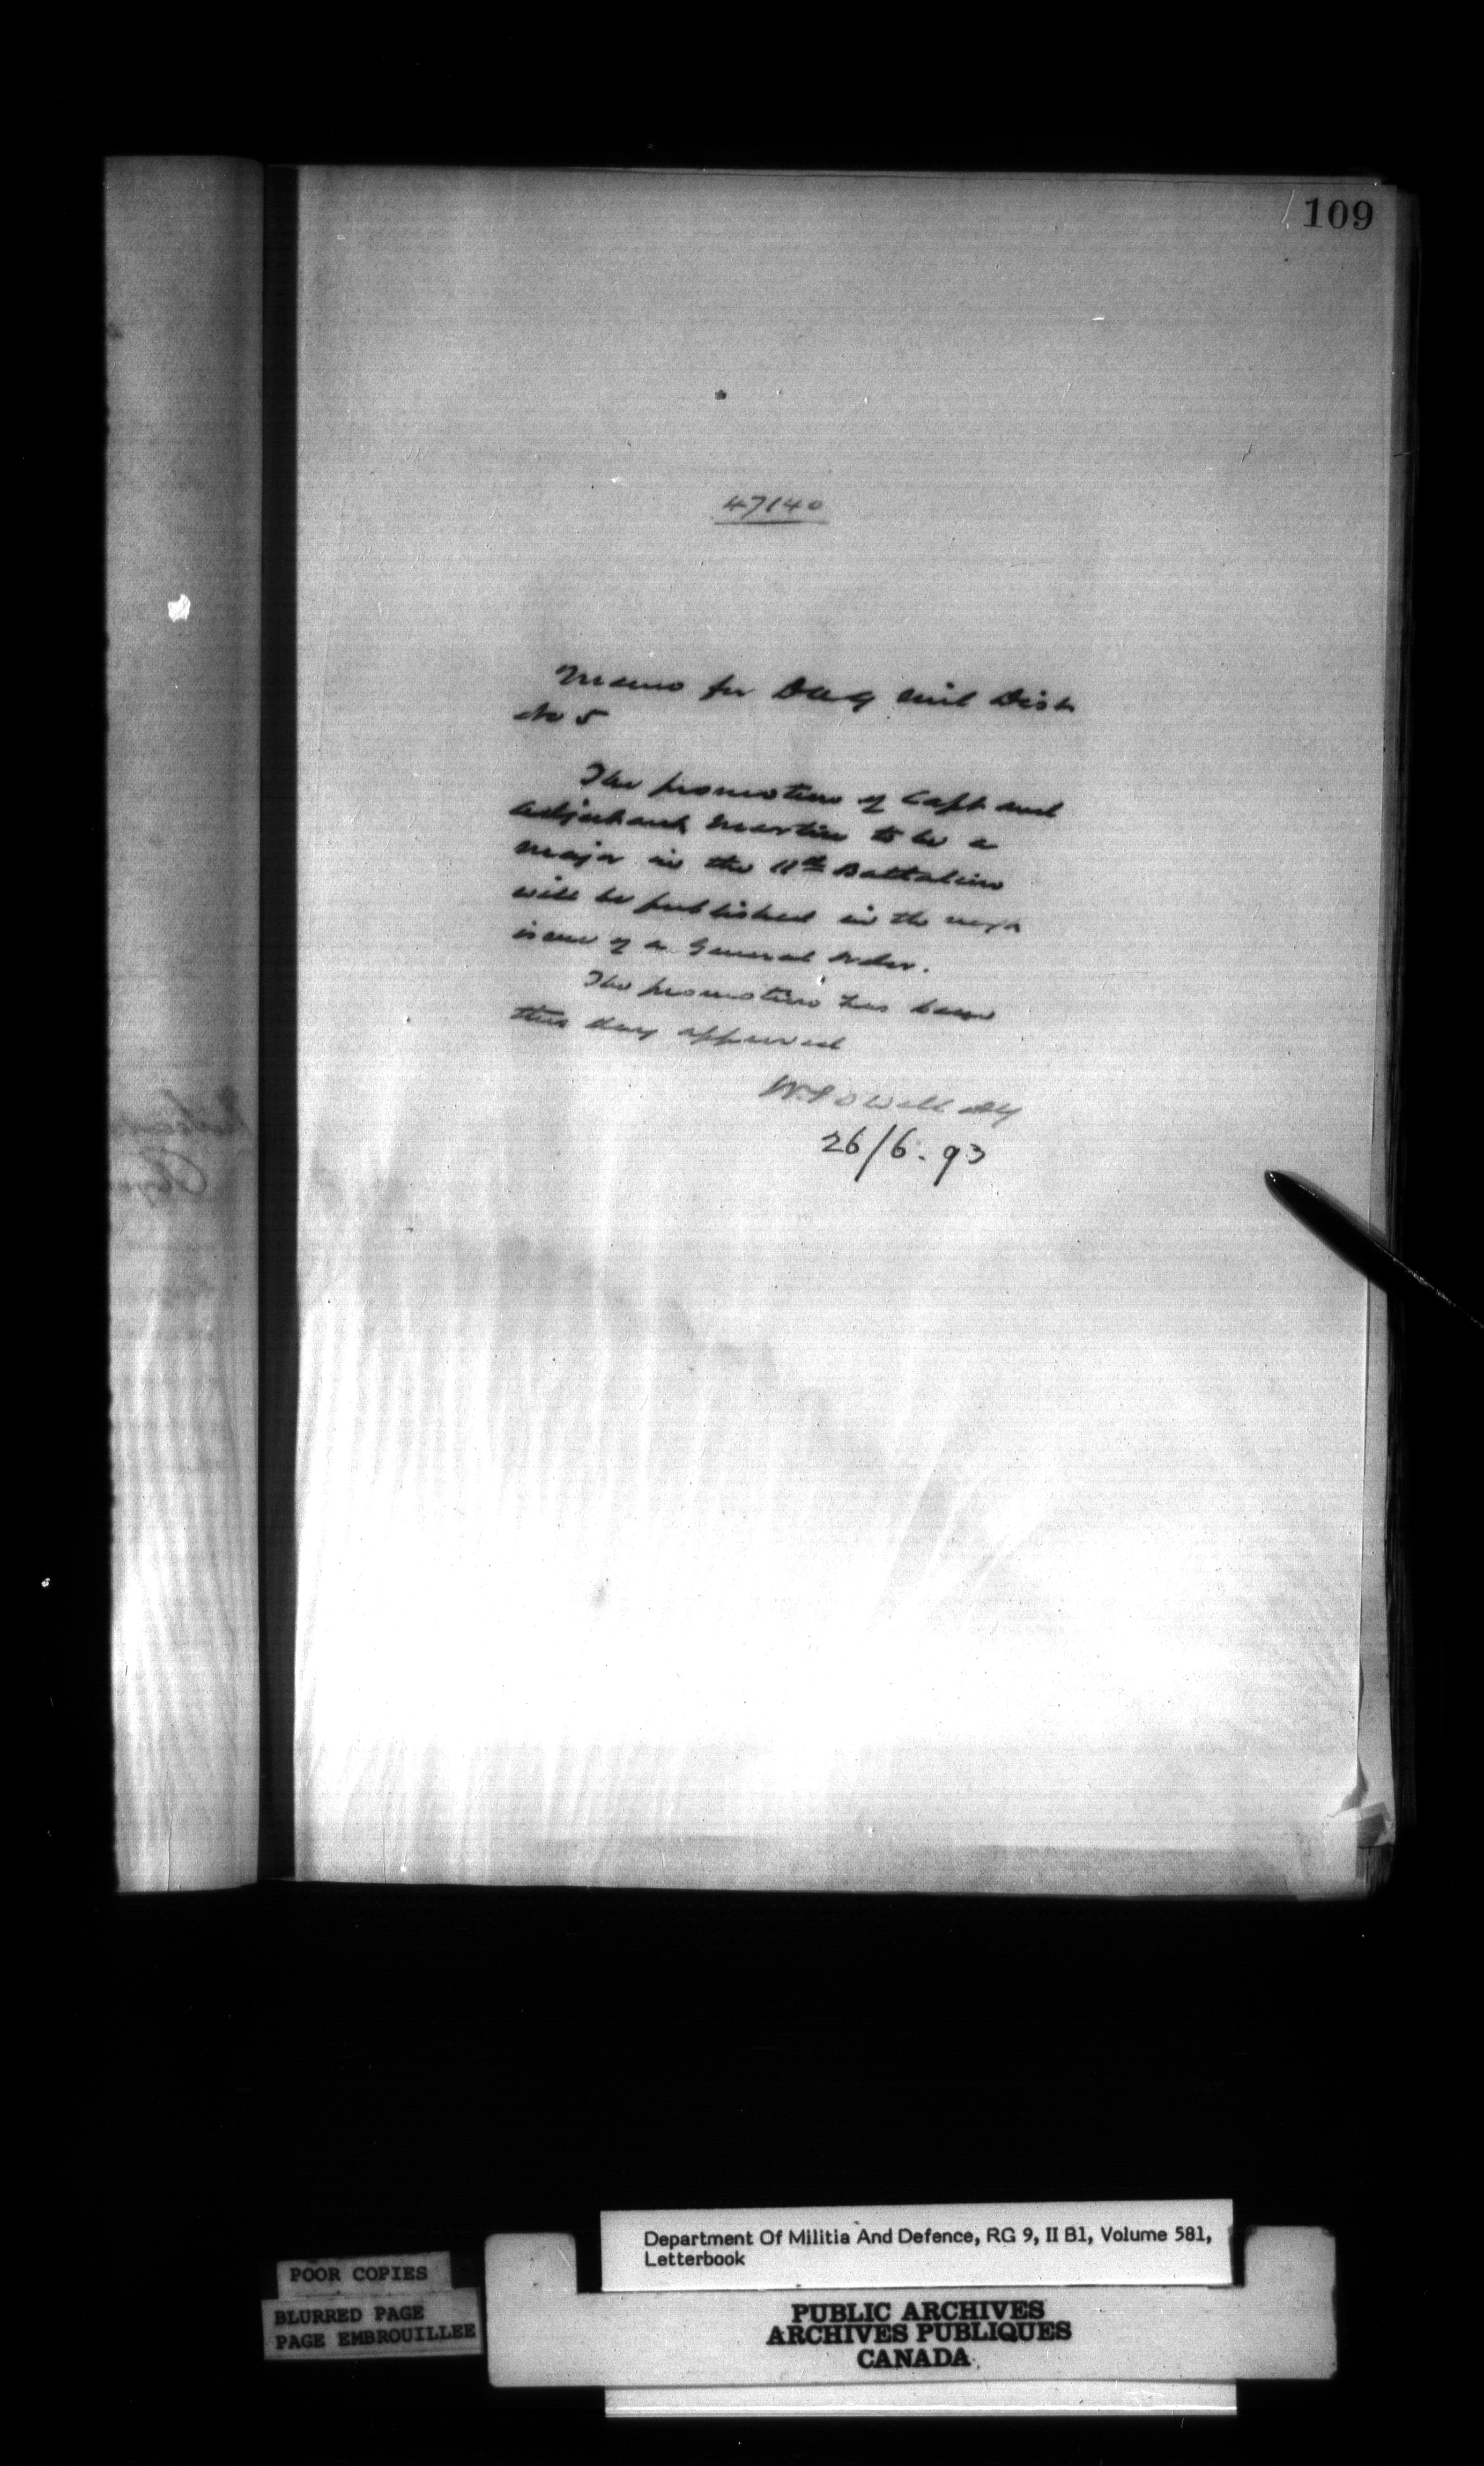 109
47140
Memo for DAG Mil Dist
No 5
The promotion of Capt and
Adjutant Martin to be a
Major in the 11th Battalion
will be published in the next
issue of a General Order.
The promotion has been
this day approved
W. Powell AG
26/6. 93
Department Of Militia And Defence, RG 9, II B1, Volume 581,
Letterbook
POOR COPIES
BLURRED PAGE
PAGE EMBROUILLEE
PUBLIC ARCHIVES
ARCHIVES PUBLIQUES
CANADA